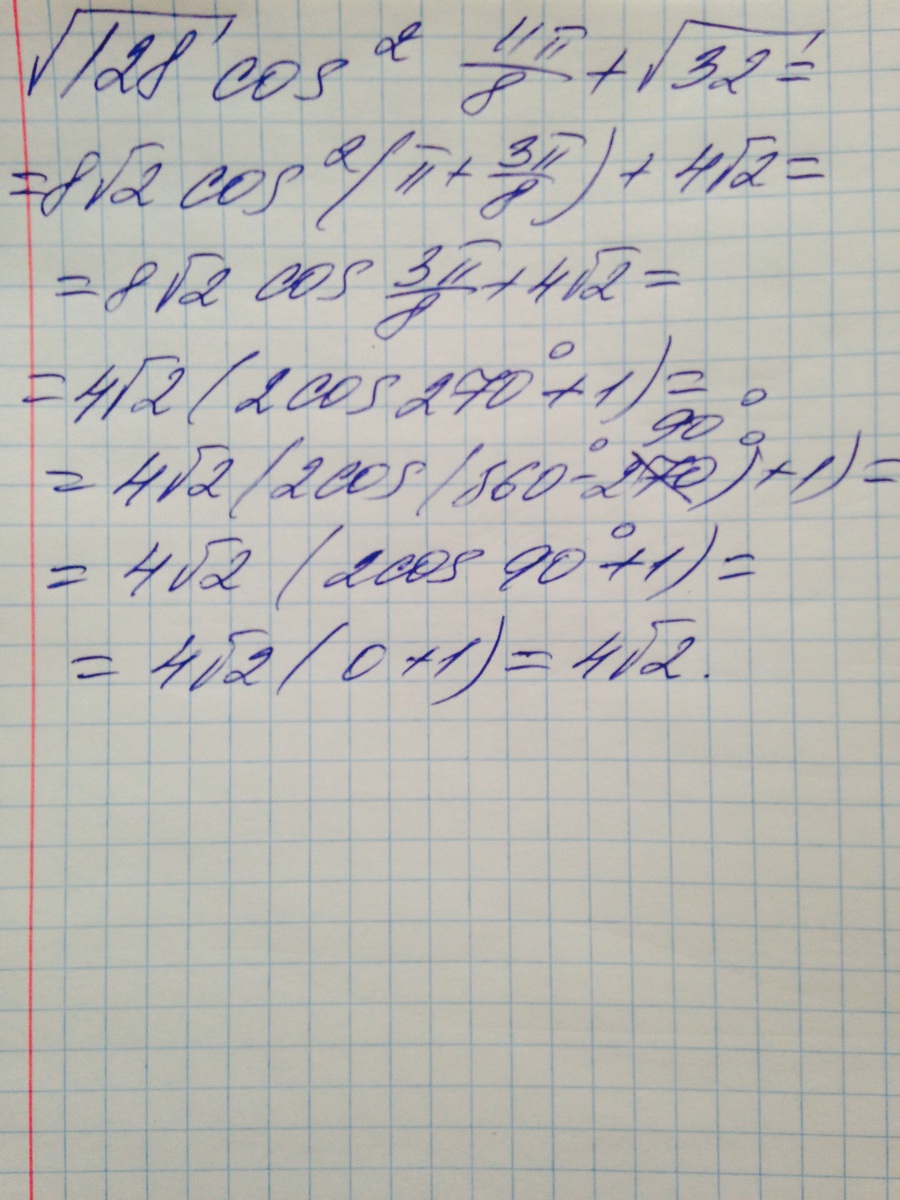 √128 cos² 11π/8 + √32 =
= 8√2 cos² (π + 3π/8) + 4√2 =
= 8√2 cos 3π/8 + 4√2 =
= 4√2 (2cos 270° + 1) =
90°
= 4√2 (2cos (360° - 270°) + 1) =
= 4√2 (2cos 90° + 1) =
= 4√2 (0 + 1) = 4√2.